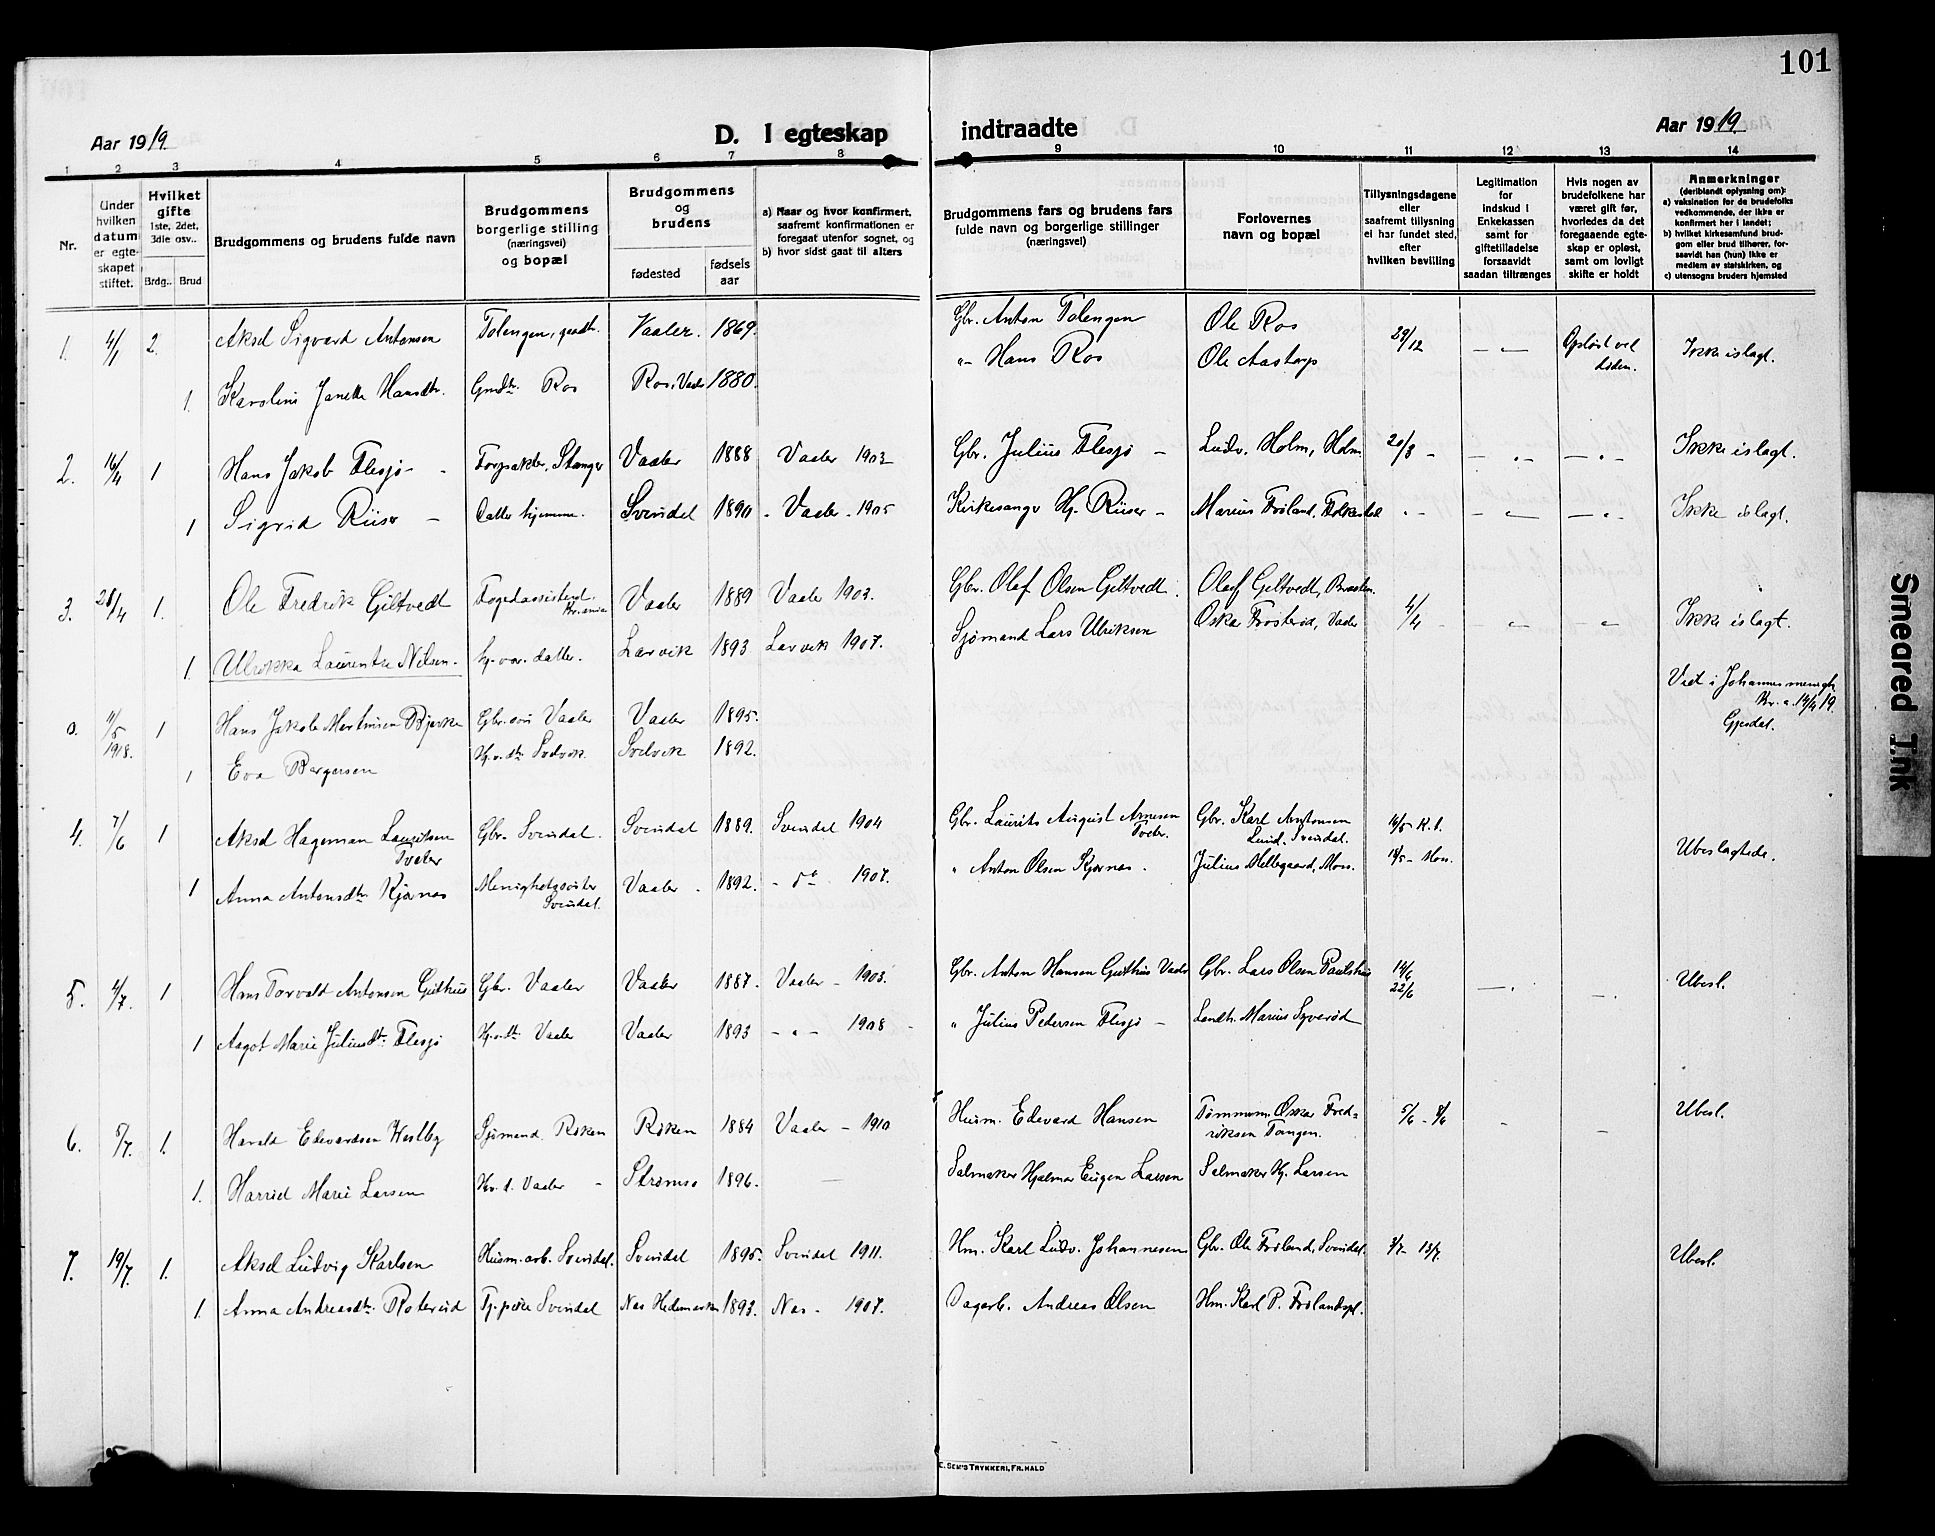 101
Aar 1919.
D. I egteskap indtraadte
Aar 1919
1 2 3 4 5 6 7 8 9 10 11 12 13 14
Nr.
Under hvilken datum er egteskapet stiftet.
Hvilket gifte 1ste, 2det, 3die osv..
Brdg.. Brud
Brudgommens og brudens fulde navn
Brudgommens borgerlige stilling (næringsvei) og bopæl
Brudgommens og brudens
fødested
fødsels aar
a) Naar og hvor konfirmert, saafremt konfirmationen er foregaat utenfor sognet, og
b) hvor sidst gaat til alters
Brudgommens fars og brudens fars fulde navn og borgerlige stillinger (næringsvei)
Forlovernes navn og bopæl
Tillysningsdagene eller saafremt tillysning ei har fundet sted, efter hvilken bevilling
Legitimation for indskud i Enkekassen samt for giftetilladelse forsaavidt saadan tiltrænges
Hvis nogen av brudefolkene har været gift før, hvorledes da det foregaaende egteskap er opløst, samt om lovligt skifte er holdt
Anmerkninger (deriblandt oplysning om):
a) vaksination for de brudefolks vedkommende, der ikke er konfirmert her i landet;
b) hvilket kirkesamfund brudgom eller brud tilhører, forsaavidt han (hun) ikke er medlem av statskirken, og
c) utensogns bruders hjemsted
1. 4/1 2. Aksel Sigvard Antonsen Tolengen, gaardbr. Vaaler. 1869. Gbr. Anton Tolengen Ole Ros 29/12 Opløst ved døden. Ikke islagt.
1. Karoline Janette Hansdtr. Gmdtr Ros Ros, Vaaler 1880. "- Hans Ros Ole Aastorp
2. 16/4 1 Hans Jakob Flesjø - Forpakter, Stanger Vaaler 1888 Vaaler 1903 Gbr. Julius Flesjø - Ludv. Holm, Holm 20/3 - Ikke islagt.
1 Sigrid Riiser - Datter hjemme. Svindal 1890 - Vaaler - 1905 Kirkesangr Hj. Riiser - Marius Frøland, Folkestad Ikke islagt.
3. 28/4 1. Ole Fredrik Giltvedt Fogedassistent. Kr.ania Vaaler 1889 Vaaler 1903. Gbr. Olaf Olsen Giltvedt. Olaf Giltvedt, Braaten. 4/4 - Ikke islagt.
1. Ulrikka Laurentze Nilsen. hj. vær. datter. Larvik 1893 Larvik 1907. Sjømand Lars Ulriksen Oskar Frøsterød, Vaaler
Viet i Johannes menigh. Kr.a. 14/4 19. Gjesdal.
0. 11/5 1918. 1 Hans Jakob Martinsen Bjerke Gbr. søn Vaaler Vaaler 1895.
1 Eva Børgersen Hj.v.dtr Svelvik Svelvik 1892.
4. 7/6 1 Aksel Hageman Lauritsen Tveter Gbr. Svindal. Svindal 1889. Svindal 1904 Gbr. Laurits August Arnesen Tveter. Gbr. Karl Antonsen Lund. Svindal. 16/5 K.l. Ubeslagtede.
1 Anna Antonsdtr Kjærnes Menighetssøster Svindal. Vaaler - 1892. - do 1907. " Anton Olsen Kjærnes. Julius Mellegaard, Moss. 18/5 - Moss.
5. 4/7. 1 Hans Torvald Antonsen Guthus Gbr. Vaaler Vaaler 1887. Vaaler - 1903. Gbr. Anton Hansen Guthus Vaaler Gbr. Lars Olsen Paulshus 14/6 22/6 Ubesl.
1 Aagot Marie Juliusdtr. Flesjø Hj.v.dtr Vaaler Vaaler 1893 - " - 1908 " Julius Pedersen Flesjø - Landh. Marius Syverød
6. 5/7. 1. Harald Edvardsen Vestby Sjømand. Røken Røken 1884 Vaaler - 1910 Husm. Edevard Hansen Tømmerm. Oskar Fredriksen Tangen. 5/6 - 8/6 Ubesl.
1. Harried Marie Larsen Hv. d. Vaaler - Strømsø 1896. - Salmaker Hjalmar Eugen Larsen Salmaker Hj. Larsen
7. 19/7. 1. Aksel Ludvig Karlsen Husm. arb. Svindal. Svindal 1895. Svindal 1911. Hm. Karl Ludv. Johannesen Gbr. Ole Frøland, Svindal. 3/7 - 13/7. Ubesl.
1. Anna Andreasdtr. Roterud Tj. pike Svindal Nes Hedemarken 1893. Nes - 1907. Dagarb. Andreas Olsen Hm. Karl P. Frølandspl.
E. SEM'S TRYKKERI, FR.HALD
Smeared Ink